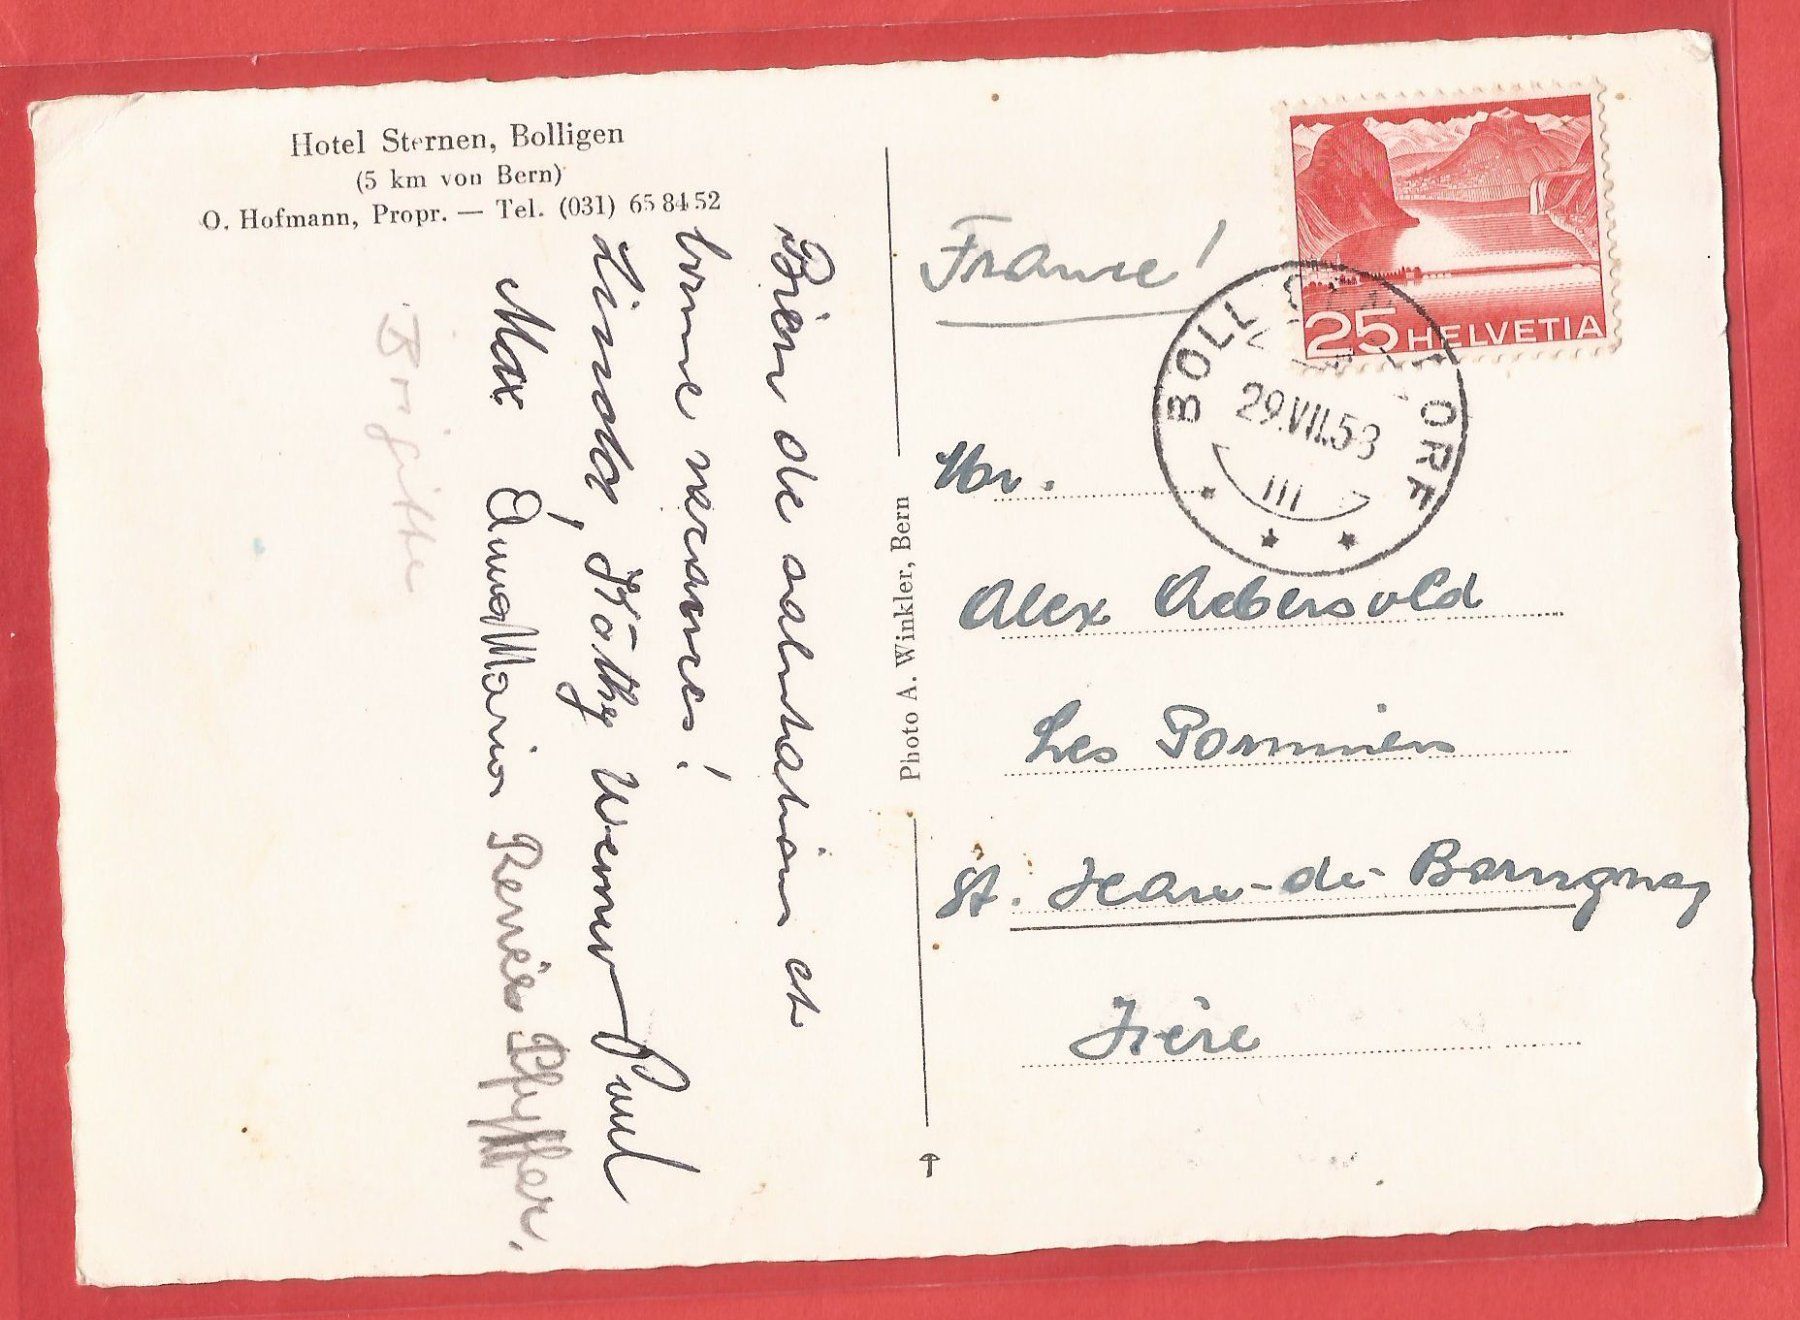 Hotel Sternen, Bolligen
(5 km von Bern)
O. Hofmann, Propr. — Tel. (031) 65 84 52
Bien de salutations et
bonne vacances!
Linda, Käthy Werner Paul
Max AnnaMaria Renées Pfyffer.
Brigitte
Photo A. Winkler, Bern
25 HELVETIA
29.VII.53
III
France!
Mr.
Alex Aebersold
Les Pommiers
St. Jean-de-Bournay
Isère